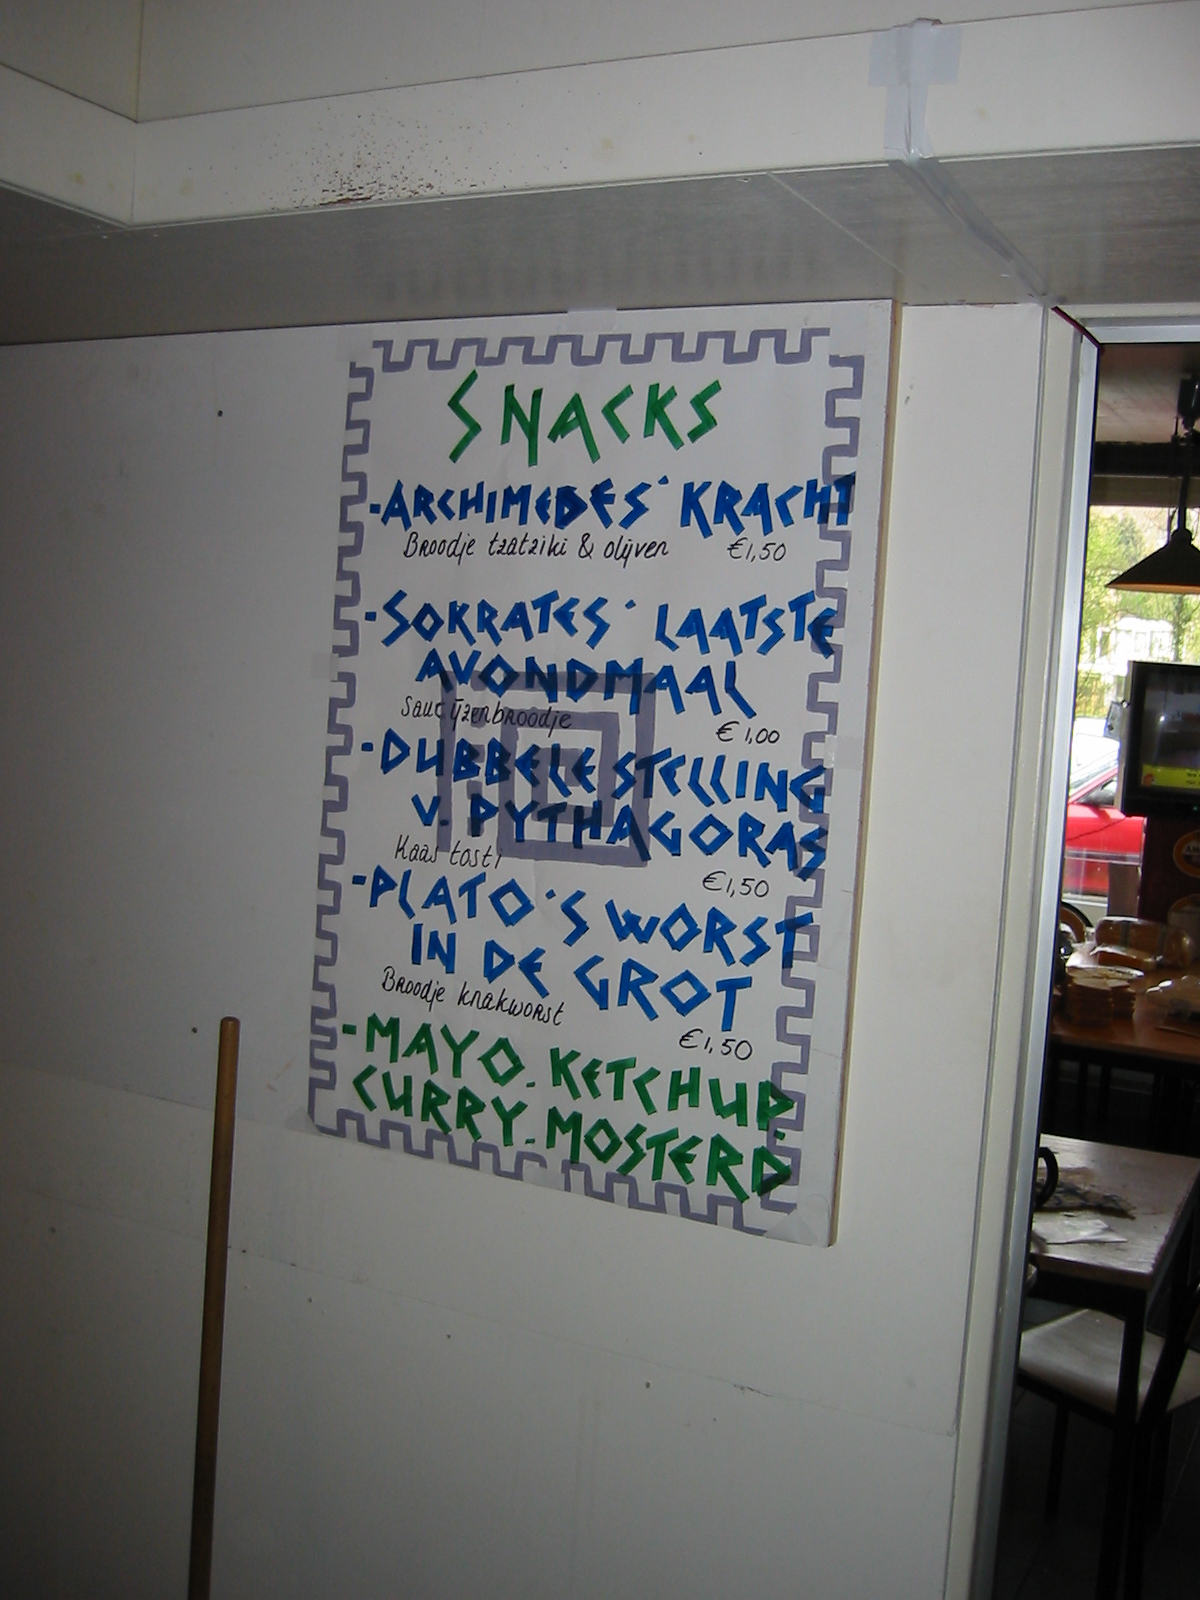 SNACKS
-ARCHIMEDES' KRACHT
Broodje tzatziki & olijven €1,50
-SOKRATES' LAATSTE
AVONDMAAL
Saucijzenbroodje €1,00
-DUBBELE STELLING
V. PYTHAGORAS
Kaas tosti €1,50
-PLATO'S WORST
IN DE GROT
Broodje knakworst €1,50
-MAYO. KETCHUP.
CURRY. MOSTERD